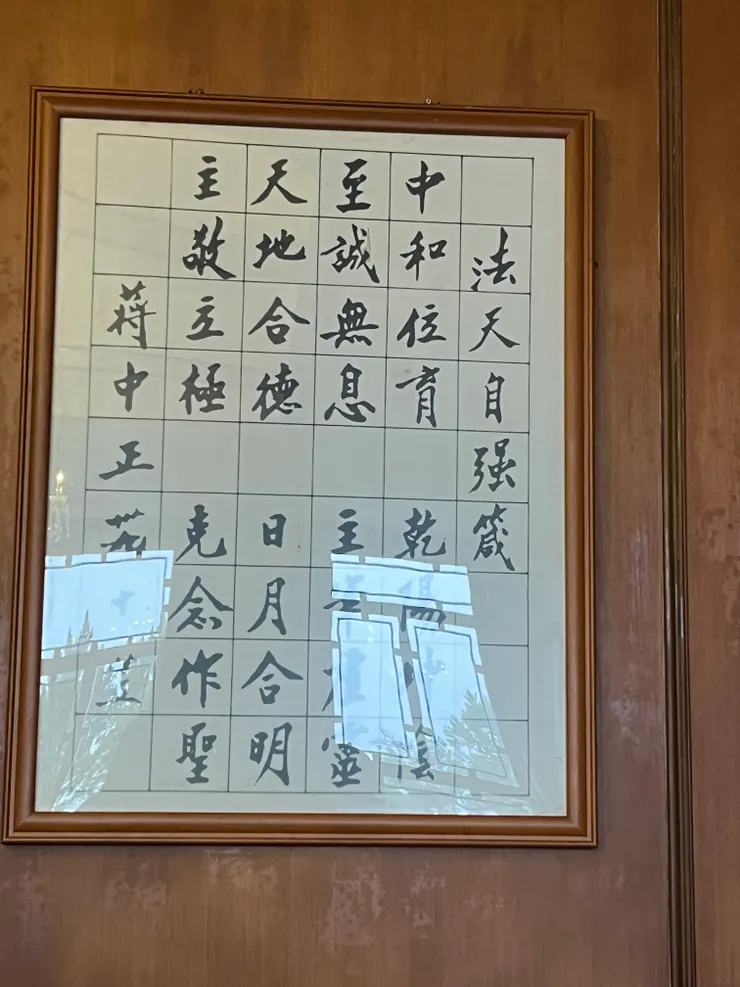 法天自强箴
中和位育 乾陽陰
至誠無息 主靈
天地合德 日月合明
主敬立極 克念作聖
蔣中正 十